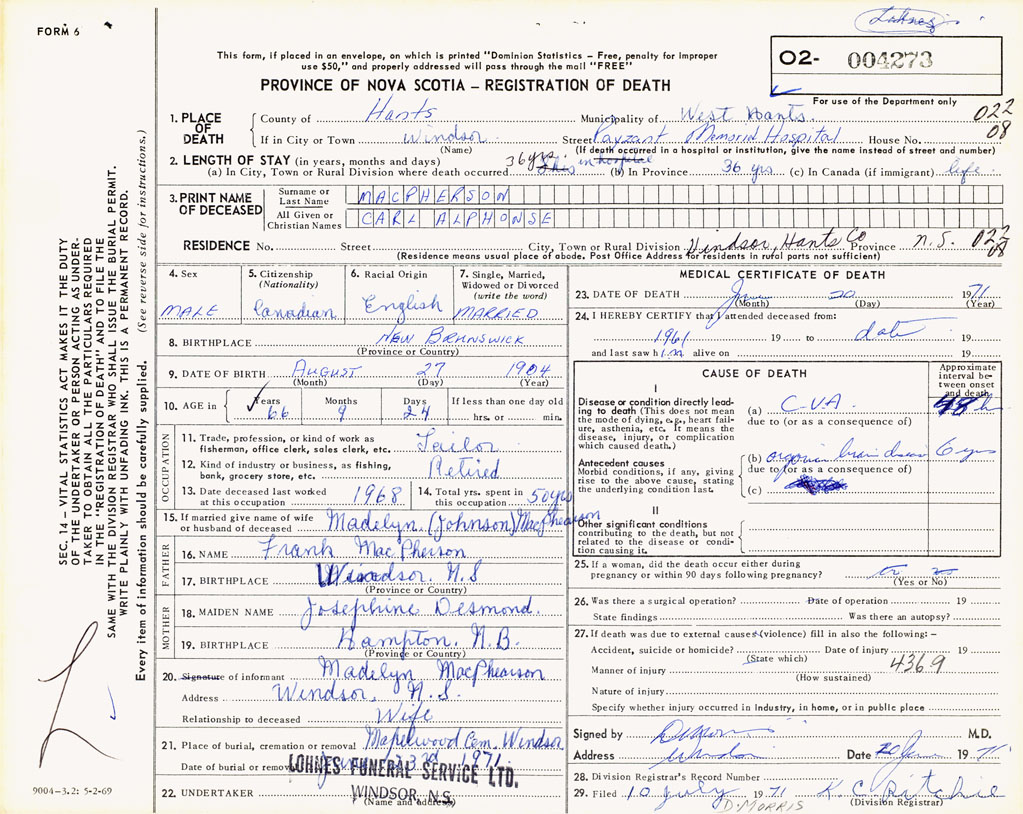 FORM 6
Lohnes
This form, if placed in an envelope, on which is printed "Dominion Statistics – Free, penalty for improper
use $50," and properly addressed will pass through the mail "FREE"
PROVINCE OF NOVA SCOTIA – REGISTRATION OF DEATH
02- 004273
For use of the Department only
1. PLACE OF DEATH County of Hants Municipality of West Hants. 022
If in City or Town Windsor Street Payzant Memorial Hospital House No. 08
(Name) (If death occurred in a hospital or institution, give the name instead of street and number)
2. LENGTH OF STAY (in years, months and days)
(a) In City, Town or Rural Division where death occurred 36 yrs. this in hospital (b) In Province 36 yrs (c) In Canada (if immigrant) life.
3. PRINT NAME OF DECEASED
Surname or Last Name MACPHERSON
All Given or Christian Names CARL ALPHONSE
RESIDENCE No. Street City, Town or Rural Division Windsor, Hants Co Province N.S. 022 08
(Residence means usual place of abode. Post Office Address for residents in rural parts not sufficient)
4. Sex MALE
5. Citizenship (Nationality) Canadian
6. Racial Origin English
7. Single, Married, Widowed or Divorced (write the word) MARRIED
8. BIRTHPLACE NEW BRUNSWICK
(Province or Country)
9. DATE OF BIRTH AUGUST 27 1904
(Month) (Day) (Year)
10. AGE in Years Months Days If less than one day old
66 9 24 hrs. or min.
OCCUPATION
11. Trade, profession, or kind of work as fisherman, office clerk, sales clerk, etc. Tailor
12. Kind of industry or business, as fishing, bank, grocery store, etc. Retired
13. Date deceased last worked at this occupation 1968
14. Total yrs. spent in this occupation 50 yrs
15. If married give name of wife or husband of deceased Madelyn (Johnson) MacPhearson
FATHER
16. NAME Frank MacPherson
17. BIRTHPLACE Windsor. N.S
(Province or Country)
MOTHER
18. MAIDEN NAME Josephine Desmond.
19. BIRTHPLACE Hampton, N.B.
(Province or Country)
20. Signature of informant Madelyn MacPhearson
Address Windsor, N.S.
Relationship to deceased Wife
21. Place of burial, cremation or removal Maplewood Cem. Windsor
Date of burial or removal 1971
LOHNES FUNERAL SERVICE LTD.
22. UNDERTAKER WINDSOR, N.S.
(Name and address)
MEDICAL CERTIFICATE OF DEATH
23. DATE OF DEATH June 20 1971
(Month) (Day) (Year)
24. I HEREBY CERTIFY that I attended deceased from:
1961 19 to date 19
and last saw him alive on 19
CAUSE OF DEATH
Approximate interval between onset and death
I
Disease or condition directly leading to death (This does not mean the mode of dying, e.g., heart failure, asthenia, etc. It means the disease, injury, or complication which caused death.)
(a) C.V.A. 48 h
due to (or as a consequence of)
Antecedent causes
Morbid conditions, if any, giving rise to the above cause, stating the underlying condition last.
(b) organic brain 6 yrs
due to (or as a consequence of)
(c)
II
Other significant conditions contributing to the death, but not related to the disease or condition causing it.
25. If a woman, did the death occur either during pregnancy or within 90 days following pregnancy?
(Yes or No)
26. Was there a surgical operation? Date of operation 19
State findings Was there an autopsy?
27. If death was due to external causes (violence) fill in also the following: –
Accident, suicide or homicide? Date of injury 19
(State which)
Manner of injury 4369
(How sustained)
Nature of injury
Specify whether injury occurred in industry, in home, or in public place
Signed by M.D.
Address Windsor Date 22 June 1971
28. Division Registrar's Record Number
29. Filed 10 July 1971 K. C. Ritchie
D. MORRIS (Division Registrar)
SEC. 14 – VITAL STATISTICS ACT MAKES IT THE DUTY
OF THE UNDERTAKER OR PERSON ACTING AS UNDER-
TAKER TO OBTAIN ALL THE PARTICULARS REQUIRED
IN THE "REGISTRATION OF DEATH" AND TO FILE THE
SAME WITH THE DIVISION REGISTRAR WHO SHALL ISSUE THE BURIAL PERMIT.
WRITE PLAINLY WITH UNFADING INK. THIS IS A PERMANENT RECORD.
Every item of information should be carefully supplied. (See reverse side for instructions.)
9004-3.2: 5-2-69